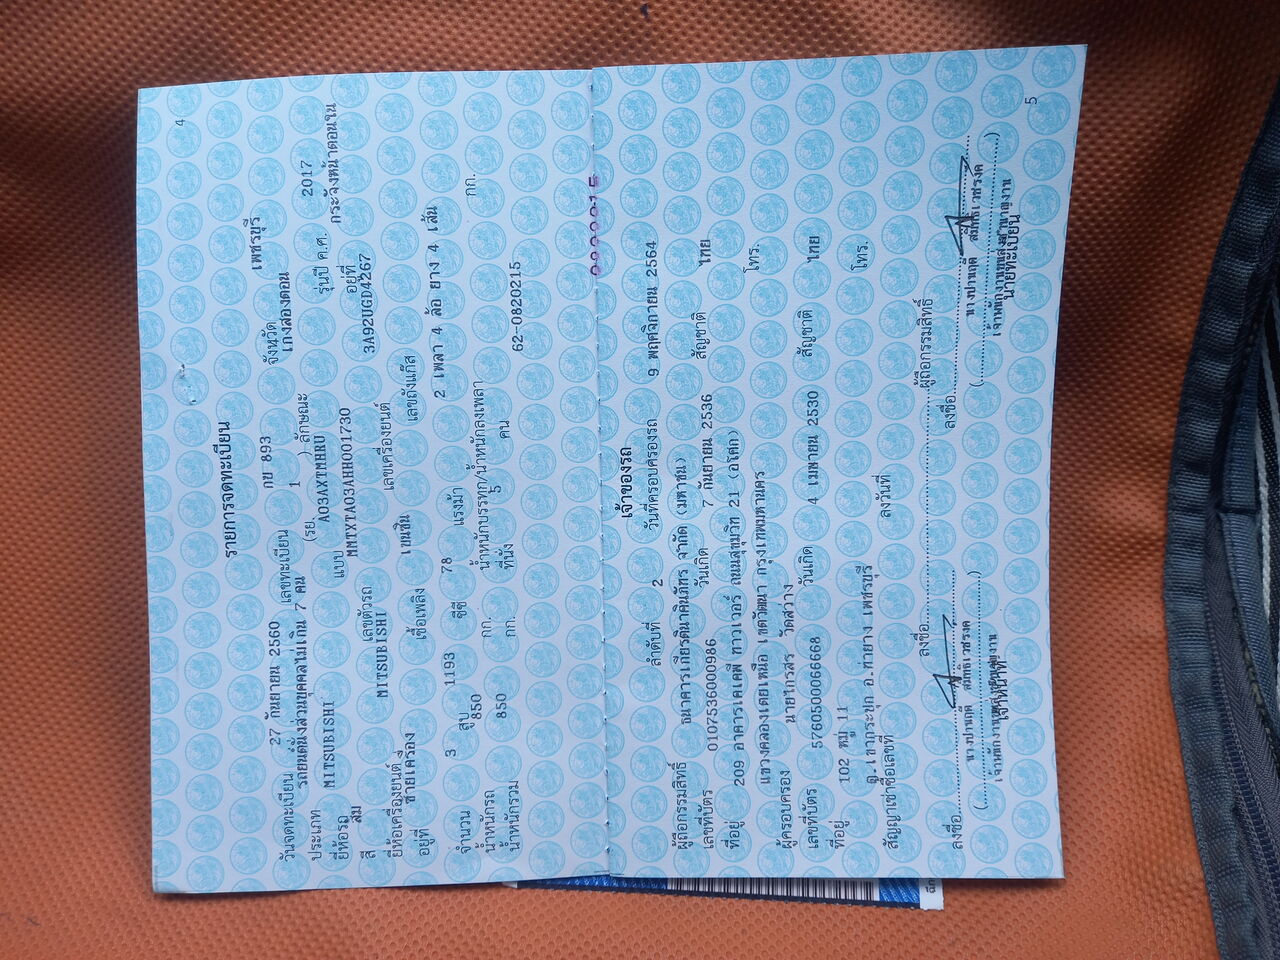 4
รายการจดทะเบียน
วันจดทะเบียน 27 กันยายน 2560 เลขทะเบียน กข 893 จังหวัด เพชรบุรี
ประเภท รถยนต์นั่งส่วนบุคคลไม่เกิน 7 คน (รย. 1 ) ลักษณะ เก๋งสองตอน
ยี่ห้อรถ MITSUBISHI แบบ A03AXTMHRU รุ่นปี ค.ศ. 2017
สี ส้ม เลขตัวรถ MMTXTA03AHH001730 อยู่ที่ กระจังหน้าตอนใน
ยี่ห้อเครื่องยนต์ MITSUBISHI เลขเครื่องยนต์ 3A92UGD4267
อยู่ที่ ซ้ายเครื่อง เชื้อเพลิง เบนซิน เลขถังแก๊ส
จำนวน 3 สูบ 1193 ซีซี 78 แรงม้า 2 เพลา 4 ล้อ ยาง 4 เส้น
น้ำหนักรถ 850 กก. น้ำหนักบรรทุก/น้ำหนักลงเพลา กก.
น้ำหนักรวม 850 กก. ที่นั่ง 5 คน 62-0820215
เจ้าของรถ
ลำดับที่ 2 วันที่ครอบครองรถ 9 พฤศจิกายน 2564
ผู้ถือกรรมสิทธิ์ ธนาคารเกียรตินาคินภัทร จำกัด (มหาชน)
เลขที่บัตร 0107536000986 วันเกิด 7 กันยายน 2536 สัญชาติ ไทย
ที่อยู่ 209 อาคารเคเคพี ทาวเวอร์ ถนนสุขุมวิท 21 (อโศก)
แขวงคลองเตยเหนือ เขตวัฒนา กรุงเทพมหานคร โทร.
ผู้ครอบครอง นายไกรสร วัดสว่าง
เลขที่บัตร 5760500066668 วันเกิด 4 เมษายน 2530 สัญชาติ ไทย
ที่อยู่ 102 หมู่ 11
ต.เขากระปุก อ.ท่ายาง เพชรบุรี โทร.
สัญญาเช่าซื้อเลขที่ ลงวันที่
ลงชื่อ ผู้ถือกรรมสิทธิ์
ลงชื่อ ลงชื่อ
เจ้าหน้าที่ นายทะเบียน
5